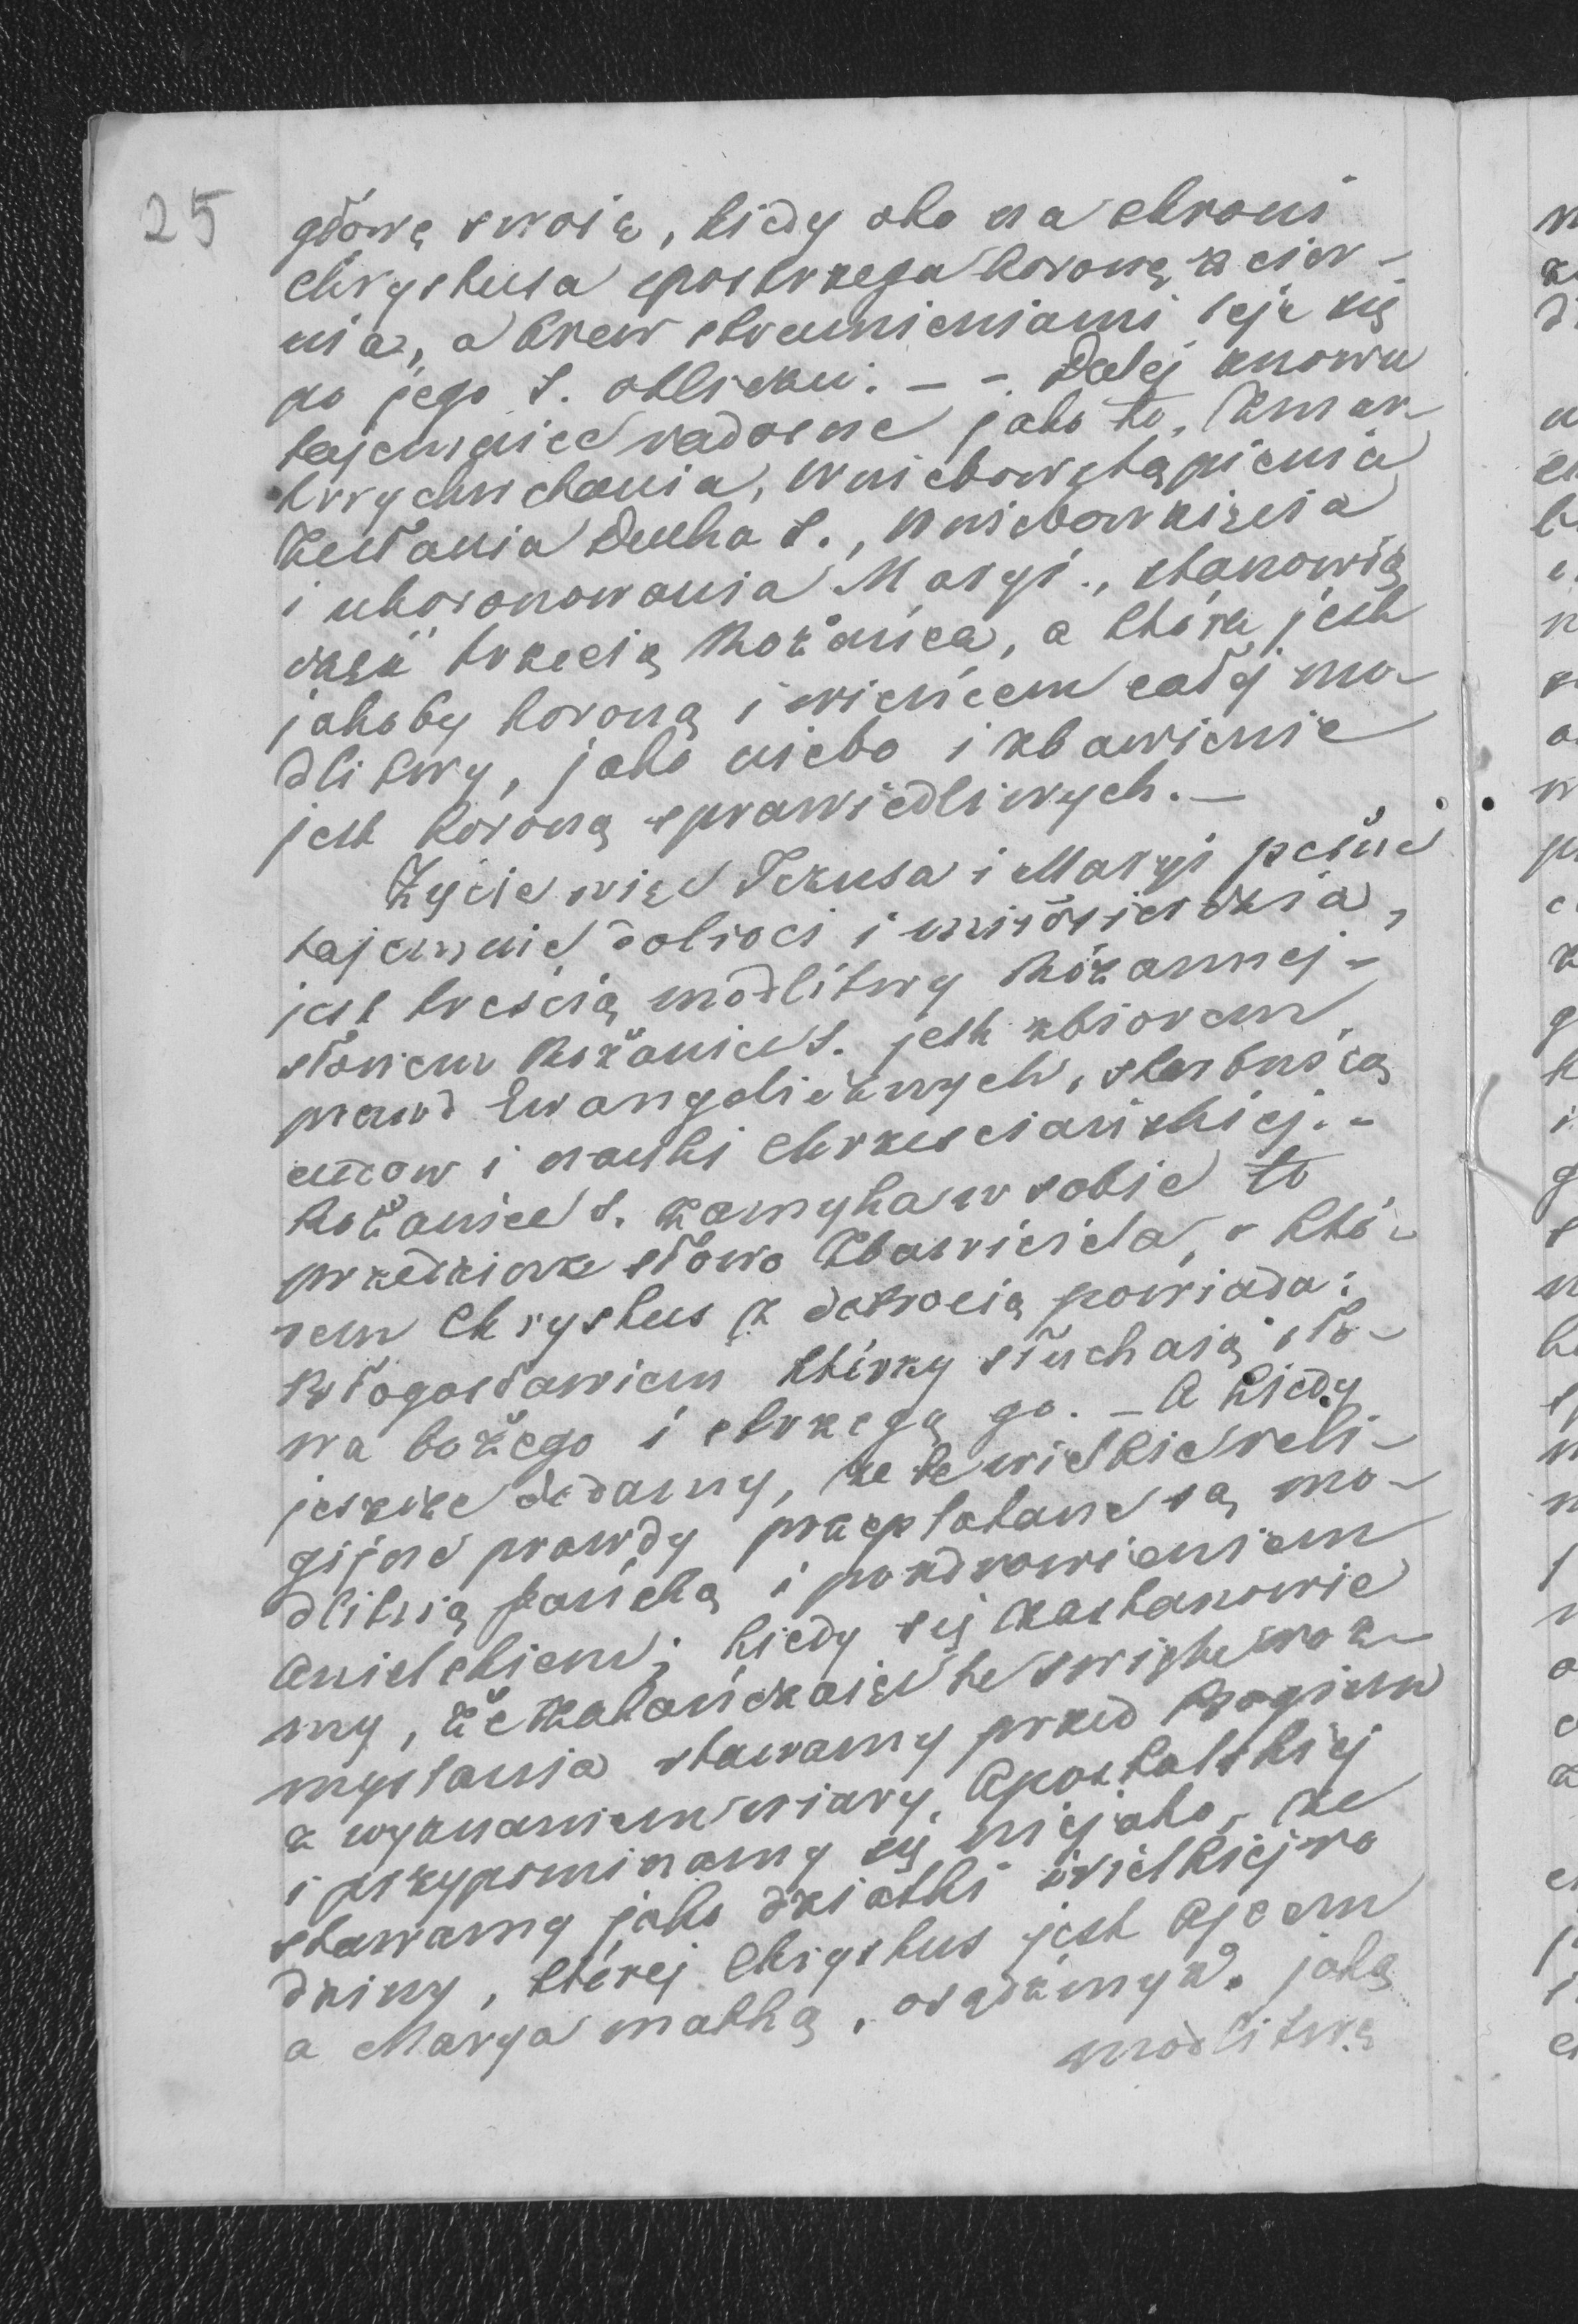 25
głowę swoię, kiedy oko na skroni
Chrystusa spostrzega koronę z cier-
nia, a krew strumieniami leje się
po jego S. obliczu. - - Dalej znowu
tajemnice radosne jako to, Zmar-
twychwstania, wniebowstąpienia
Zesłania Ducha S., wniebowzięcia
i ukoronowania Maryi., stanowią
część trzecią Rożańca, a która jest
jakoby koroną i wieńcem całej mo-
dlitwy, jako niebo i zbawienie
jest koroną sprawiedliwych. -
Życie więc Jezusa i Maryi pełne
tajemnic dobroci i miłosierdzia,
jest treścią modlitwy Różannej -
słowem Rożaniec S. jest zbiorem
prawd Ewangelicznych, skarbnicą
cudow i nauki chrześciańskiej. -
Rożaniec S. zamyka w sobie to
przedziwne słowo Zbawiciela, o któ-
rem Chrystus z dobrocią powiada:
Błogosławieni którzy słuchają sło-
wa bożego i strzegą go. - A kiedy
jeszcze dodamy, że te wielkie reli-
gijne prawdy przeplatane są mo-
dlitwą pańską i pozdrowieniem
Anielskiem; kiedy się zastanowie
my, że zakańczając te święte roz-
myslania stawamy przed Bogiem
z wyznaniem wiary Apostolskiej
i przypominamy się niejako, że
stawamy jako dziatki wielkiej ro
dziny, której Chrystus jest Ojcem
a Marya matką, osądźmyż. jaką
modlitwą